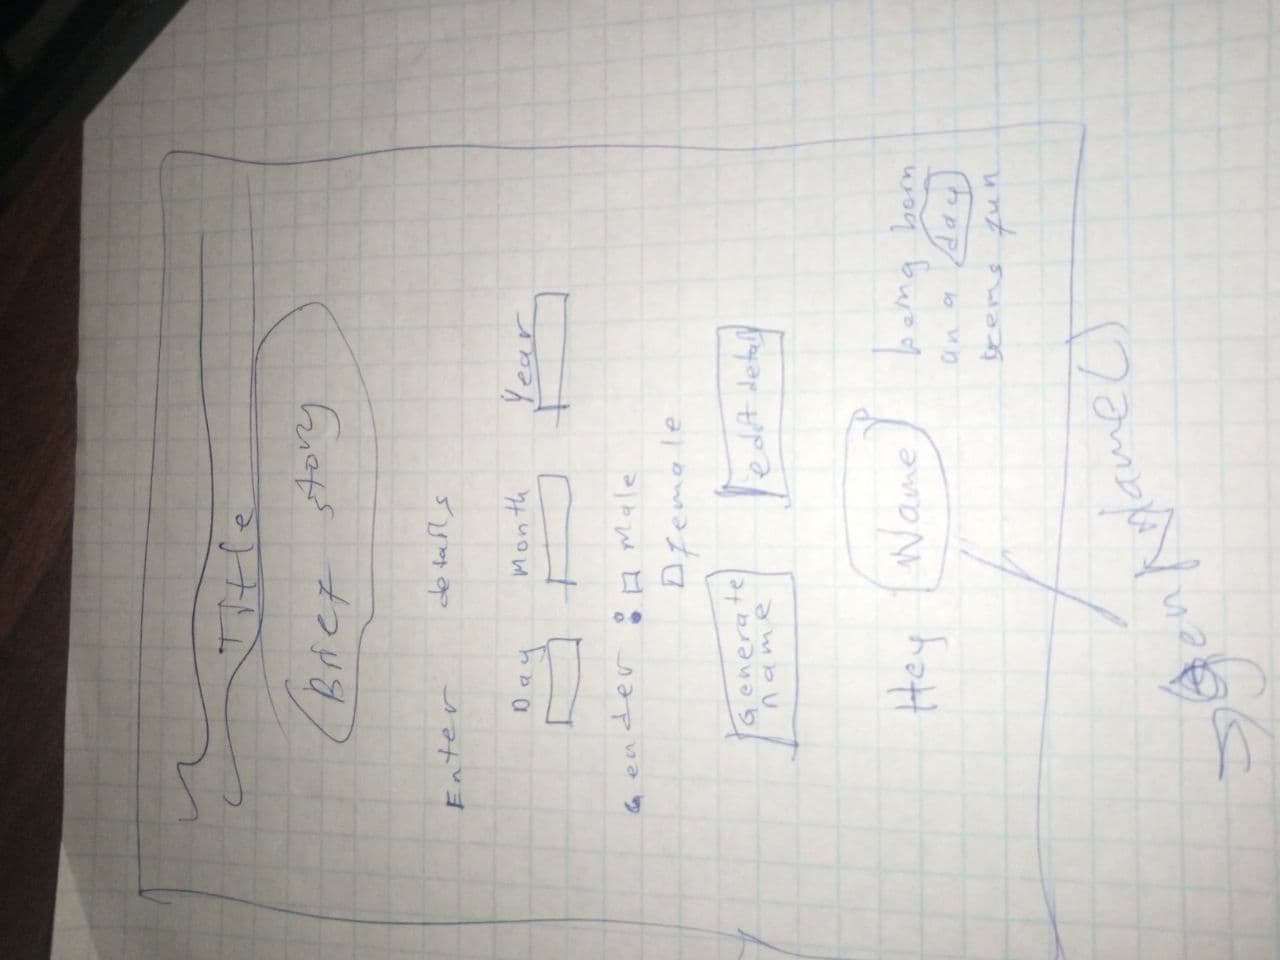 Title
Brief story
Enter details
Day Month Year
Gender: Male
female
Generate name
edit detail
Hey Name
being born
on a day
seems fun
Name()